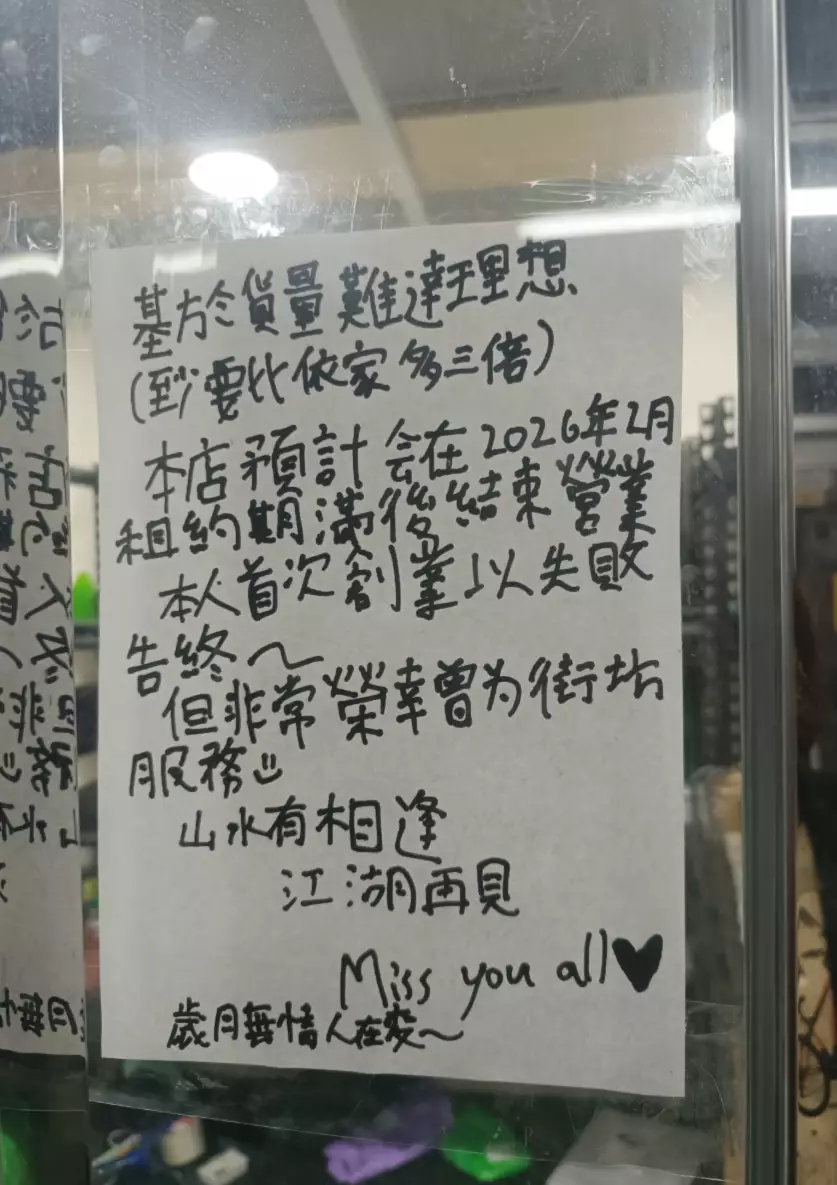 基於貨量難達理想
(至少要比依家多三倍)
本店預計会在2026年2月
租約期滿後結束營業
本人首次創業以失敗
告終～
但非常榮幸曾为街坊
服務
山水有相逢
江湖再見
Miss you all♥
歲月無情人在变～